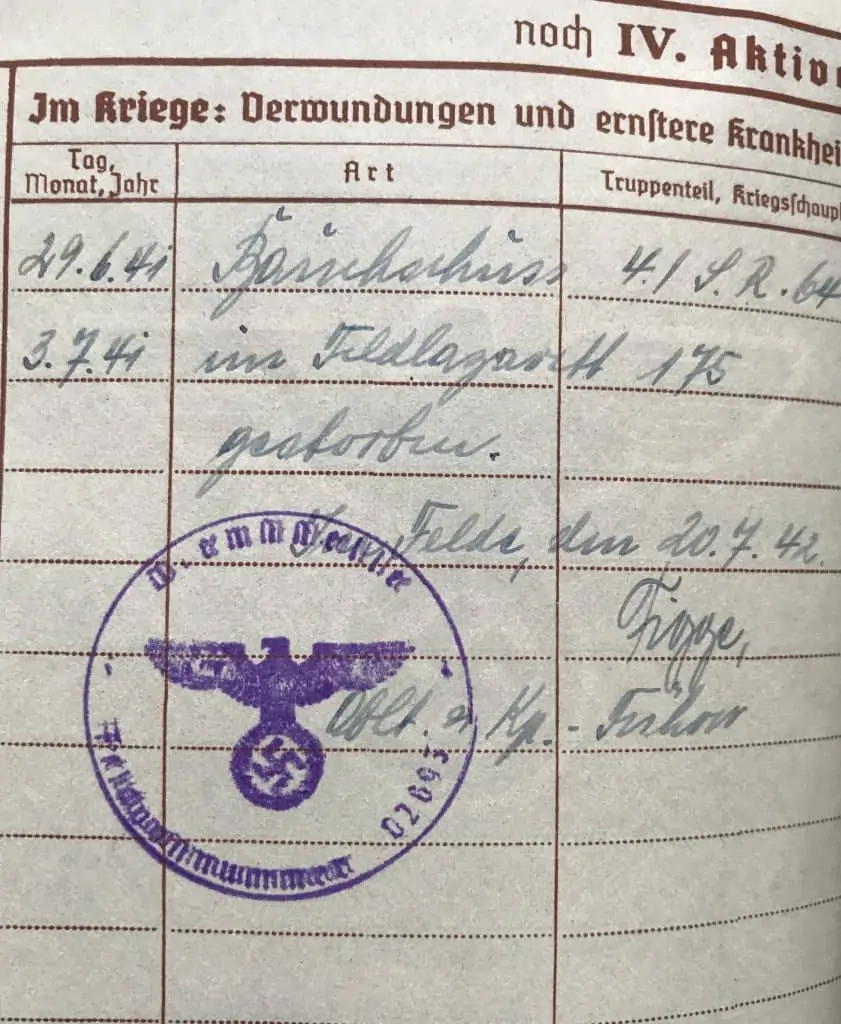 noch IV. Aktive
Im Kriege: Verwundungen und ernstere Krankhei
Tag, Monat, Jahr
Art
Truppenteil, Kriegsschaupl
29.6.41 Bauchschuss 4./S.R.64
3.7.41 im Feldlazarett 175
gestorben.
Im Felde, den 20.7.42.
Figge,
Oblt. u. Kp.-Führer
Feldpostnummer 02693